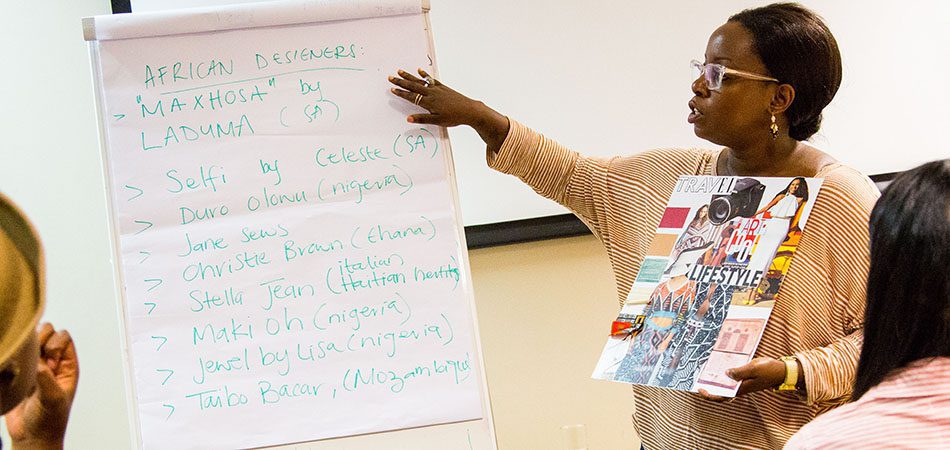 AFRICAN DESIGNERS:
> "MAXHOSA" by
LADUMA (SA)
> Selfi by Celeste (SA)
> Duro olowu (nigeria)
> Jane sews
> Christie Brown (Ghana)
italian
> Stella Jean (Haitian heritg)
> Maki Oh (nigeria)
> Jewel by Lisa (nigeria)
> Taibo Bacar, (Mozambique)
TRAVEL
LIFESTYLE